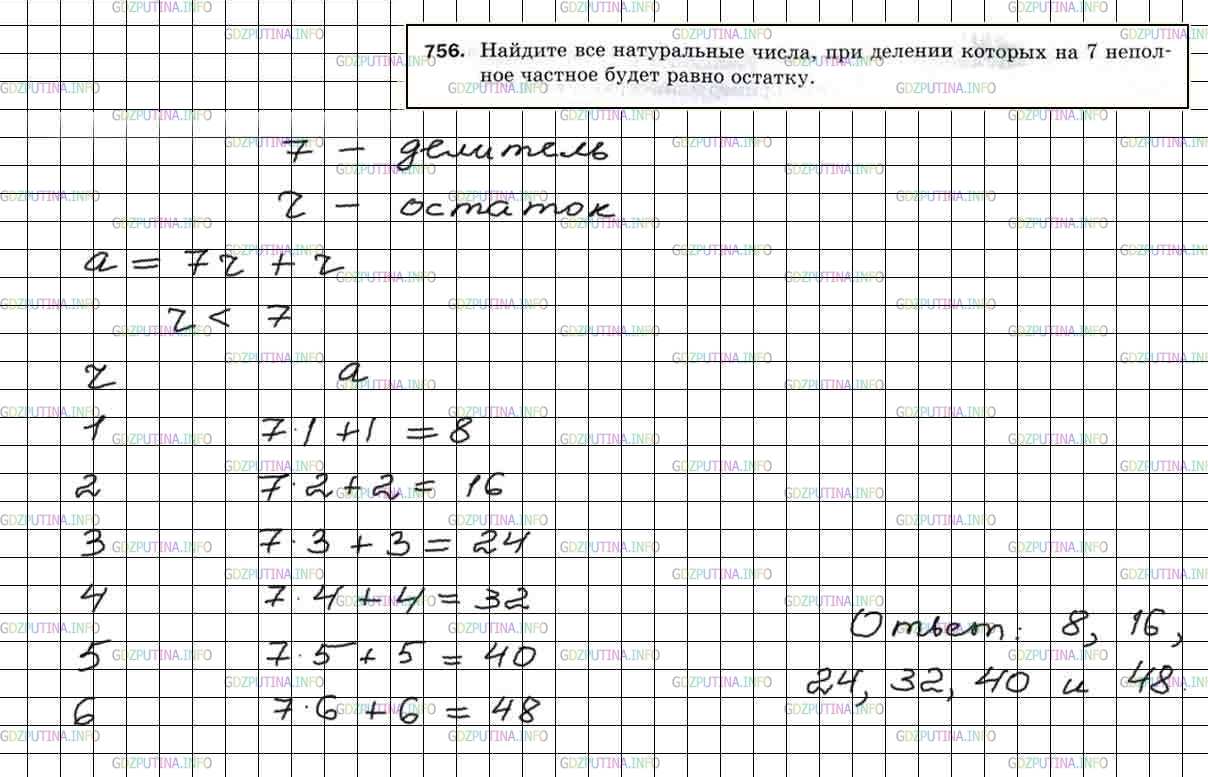 756. Найдите все натуральные числа, при делении которых на 7 непол-
ное частное будет равно остатку.
7 – делитель
r – остаток
a = 7r + r
r < 7
r a
1 7·1 + 1 = 8
2 7·2 + 2 = 16
3 7·3 + 3 = 24
4 7·4 + 4 = 32
5 7·5 + 5 = 40
6 7·6 + 6 = 48
Ответ: 8, 16,
24, 32, 40 и 48.
GDZPUTINA.INFO